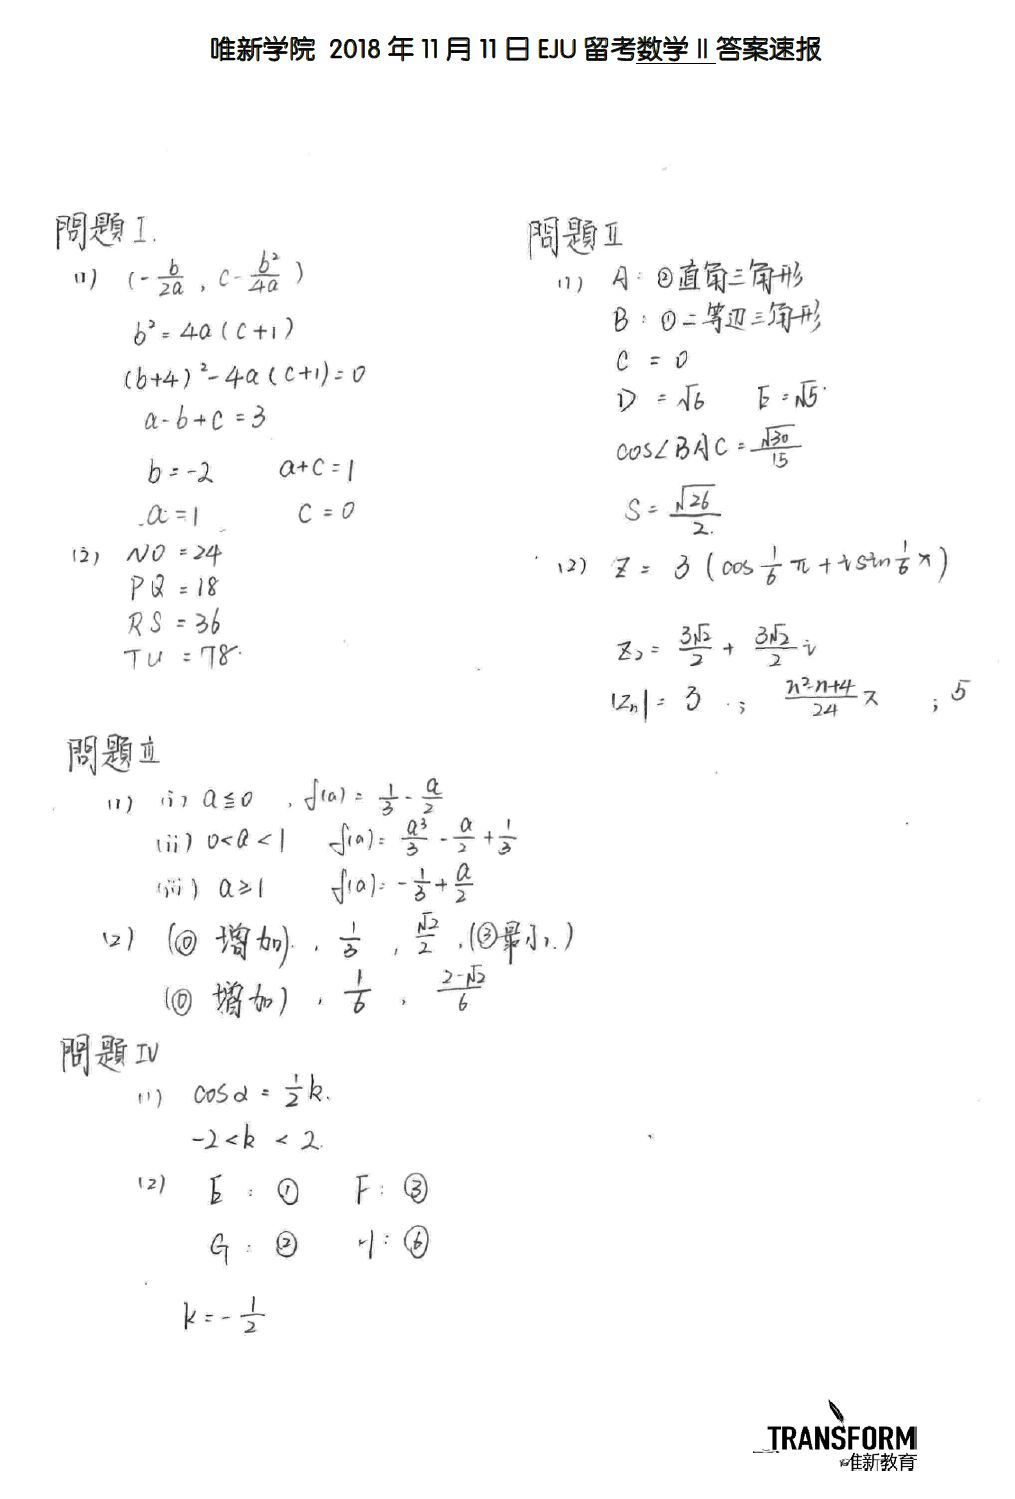 唯新学院 2018 年 11 月 11 日 EJU 留考数学 II 答案速报
問題 I.
(1) (-b/2a , c - b²/4a)
b² = 4a(c+1)
(b+4)² - 4a(c+1) = 0
a - b + c = 3
b = -2 a+c = 1
a = 1 c = 0
(2) NO = 24
PQ = 18
RS = 36
TU = 78
問題 II
(1) A: ②直角三角形
B: ①二等辺三角形
C = 0
D = √6 E = √5
cos∠BAC = √30/15
S = √26/2
(2) Z = 3 (cos 1/6 π + i sin 1/6 π)
Z₂ = 3√2/2 + 3√2/2 i
|Zn| = 3 ; n²-n+4/24 π ; 5
問題 III
(1) (i) a ≦ 0 , f(a) = 1/3 - a/2
(ii) 0 < a < 1 f(a) = a³/3 - a/2 + 1/3
(iii) a ≥ 1 f(a) = -1/3 + a/2
(2) (⓪ 增加) , 1/3 , √2/2 , (③最小)
(⓪ 增加) , 1/6 , 2-√2/6
問題 IV
(1) cosα = 1/2 k.
-2 < k < 2.
(2) E : ① F : ③
G : ② H : ⑥
k = -1/2
TRANSFORM
唯新教育